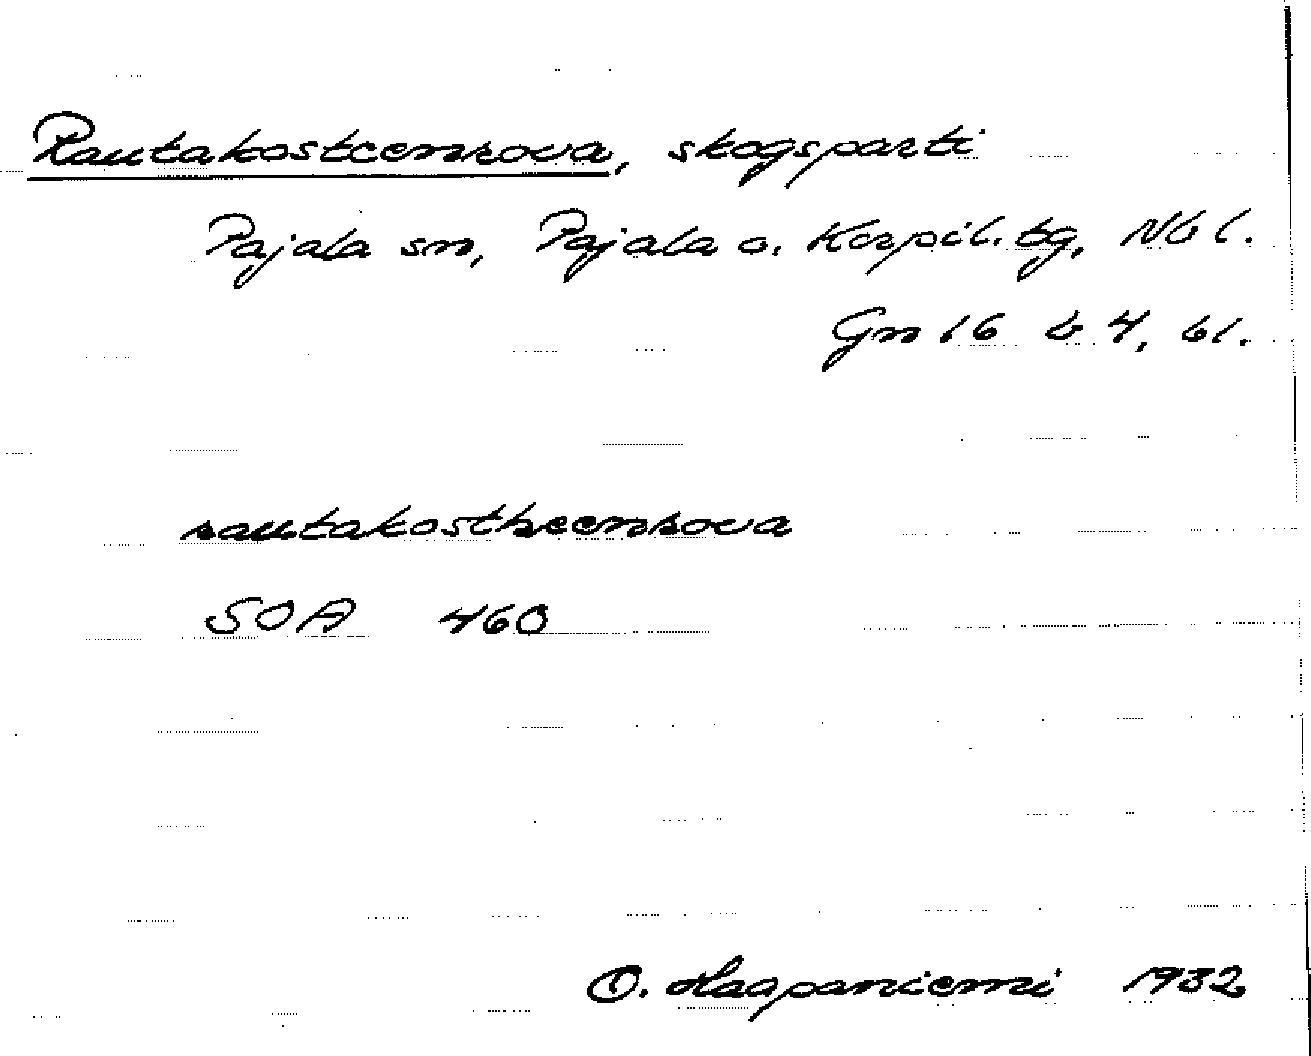 Rautakosteenrova, skogsparti
Pajala sn, Pajala o. Korpil. tg, Nb l.
Gn 16 b 4, bl.
rautakostheenrova
SOA 460
O. Haapaniemi 1932